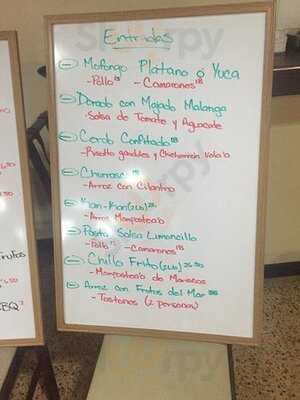 Entradas
Mofongo Plátano ó Yuca
-Pollo -Camarones
Dorado con Majado Malanga
-Salsa de Tomate y Aguacate
Cerdo Confitado
-Risotto gandules y Chicharron Volao
Churrasco
-Arroz con Cilantro
Kan-Kan
-Arroz Mamposteao
Pasta Salsa Limoncillo
-Pollo -Camarones
Chillo Frito
-Mamposteao de Mariscos
Arroz con Frutos del Mar
-Tostones (2 personas)